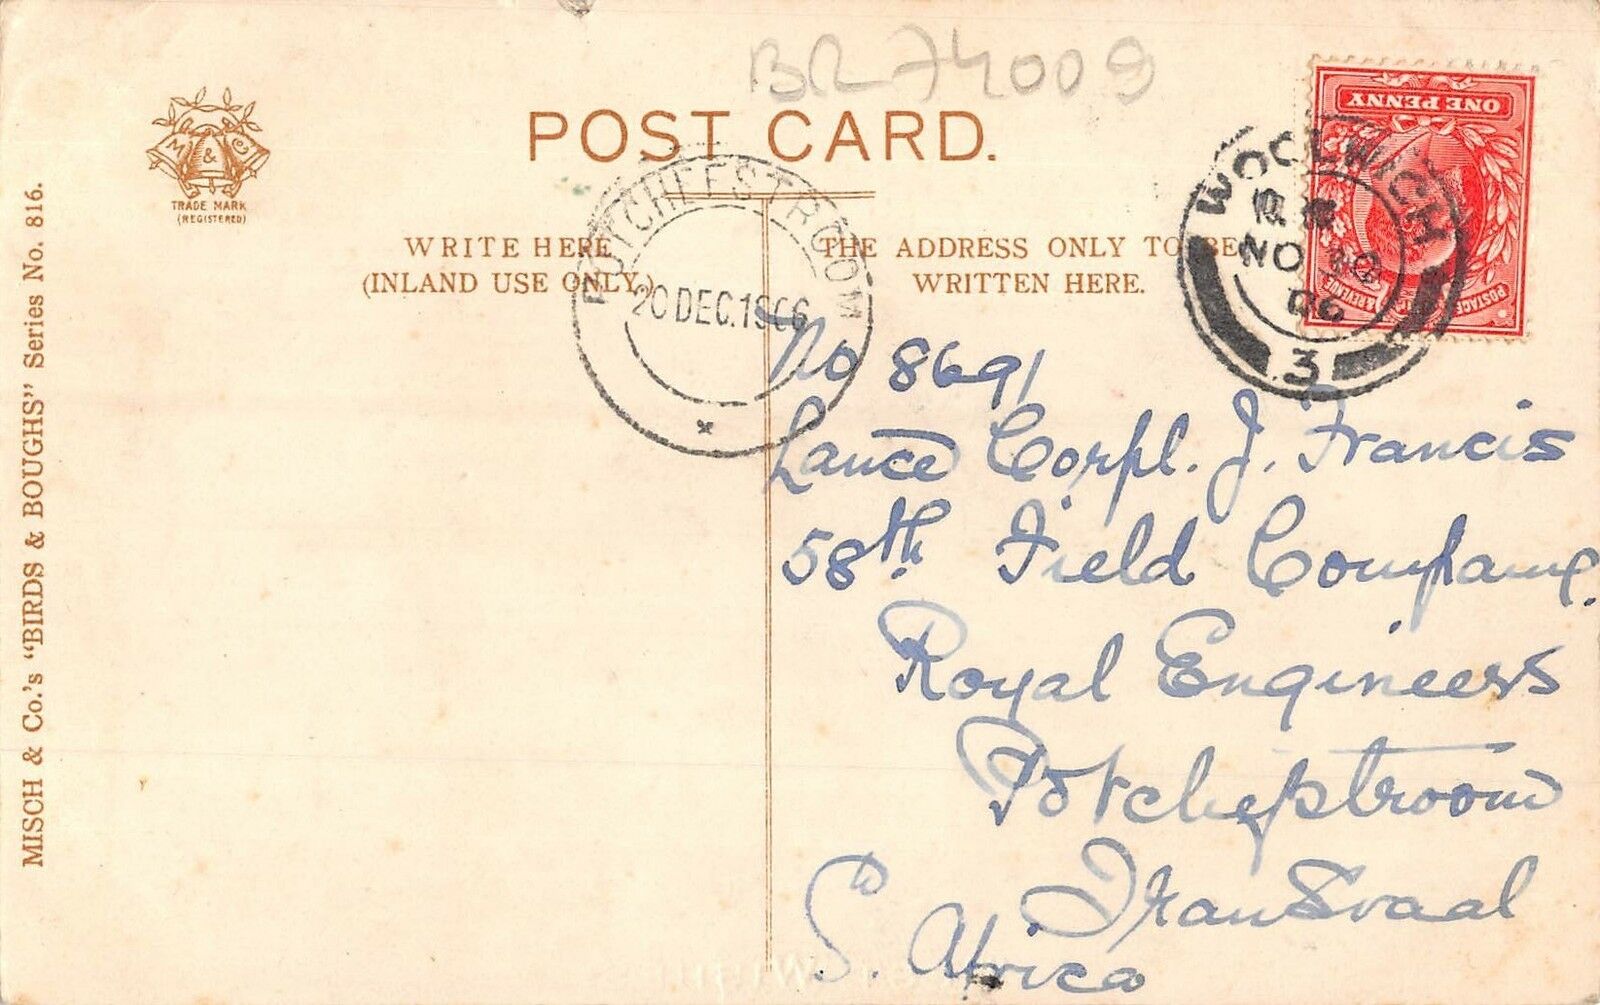 BR74009
POST CARD.
M & C
TRADE MARK
(REGISTERED)
WRITE HERE
(INLAND USE ONLY)
THE ADDRESS ONLY TO BE
WRITTEN HERE.
MISCH & Co.'s "BIRDS & BOUGHS" Series No. 816.
POTCHEFSTROOM
20 DEC. 1906
ONE PENNY
POSTAGE & REVENUE
WOOLWICH
NO
06
3
No 8691
Lance Corpl. J. Francis
58th Field Company.
Royal Engineers
Potchefstroom
Transvaal
S. Africa